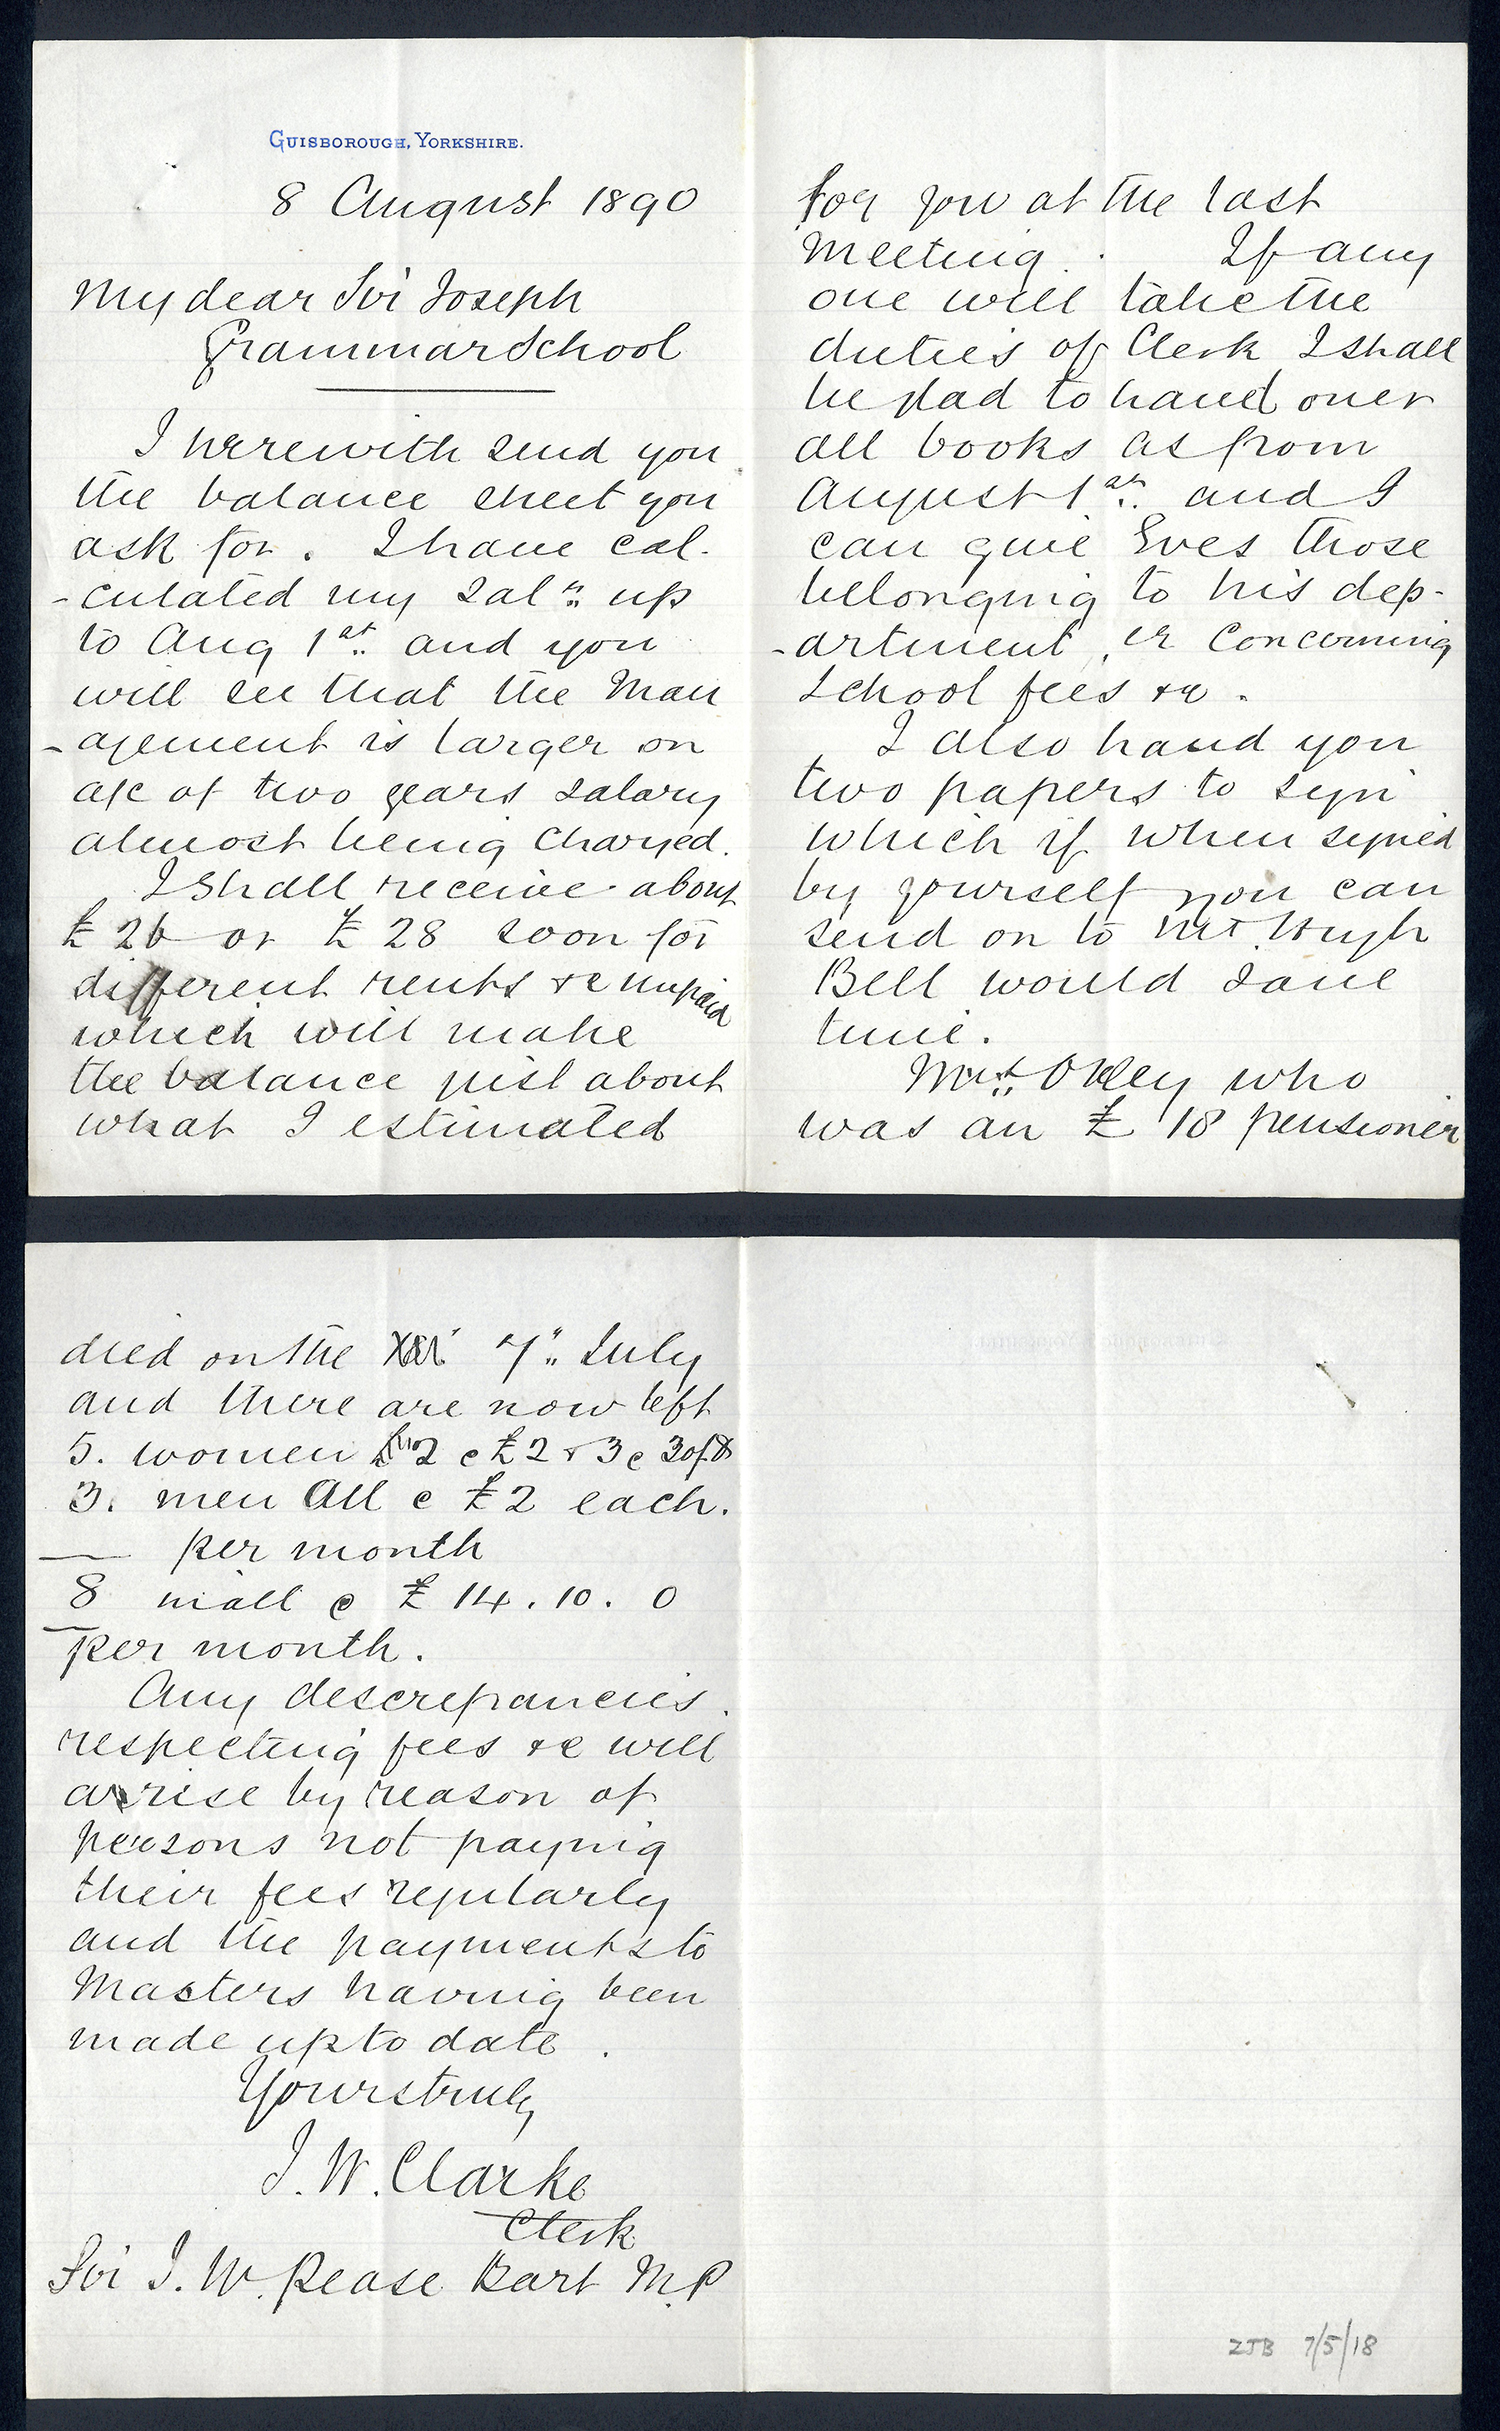 GUISBOROUGH, YORKSHIRE.
8 August 1890
My dear Sir Joseph
Grammar School
I herewith send you
the balance sheet you
ask for. I have cal-
-culated my Sal^y up
to Aug 1st and you
will see that the Man
-agement is larger on
a/c of two years salary
almost being charged.
I shall receive about
£26 or £28 soon for
different rents &c unpaid
which will make
the balance just about
what I estimated
for you at the last
meeting. If any
one will take the
duties of Clerk I shall
be glad to hand over
all books as from
August 1st and I
can give Eves those
belonging to his dep-
-artment, er concerning
School fees &c.
I also hand you
two papers to sign
which if when signed
by yourself you can
send on to Mr Hugh
Bell would save
time.
Mrs Otley who
was an £18 pensioner
died on the 7" July
and there are now left
5. women 2 @ £2 & 3 @
3. men All @ £2 each.
per month
8 in all @ £14.10.0
per month.
Any descrepancies
respecting fees &c will
arise by reason of
persons not paying
their fees regularly
and the payments to
Masters having been
made up to date.
Yours truly
J. W. Clarke
Clerk
Sir J. W. Pease Bart M.P
ZJB 7/5/18